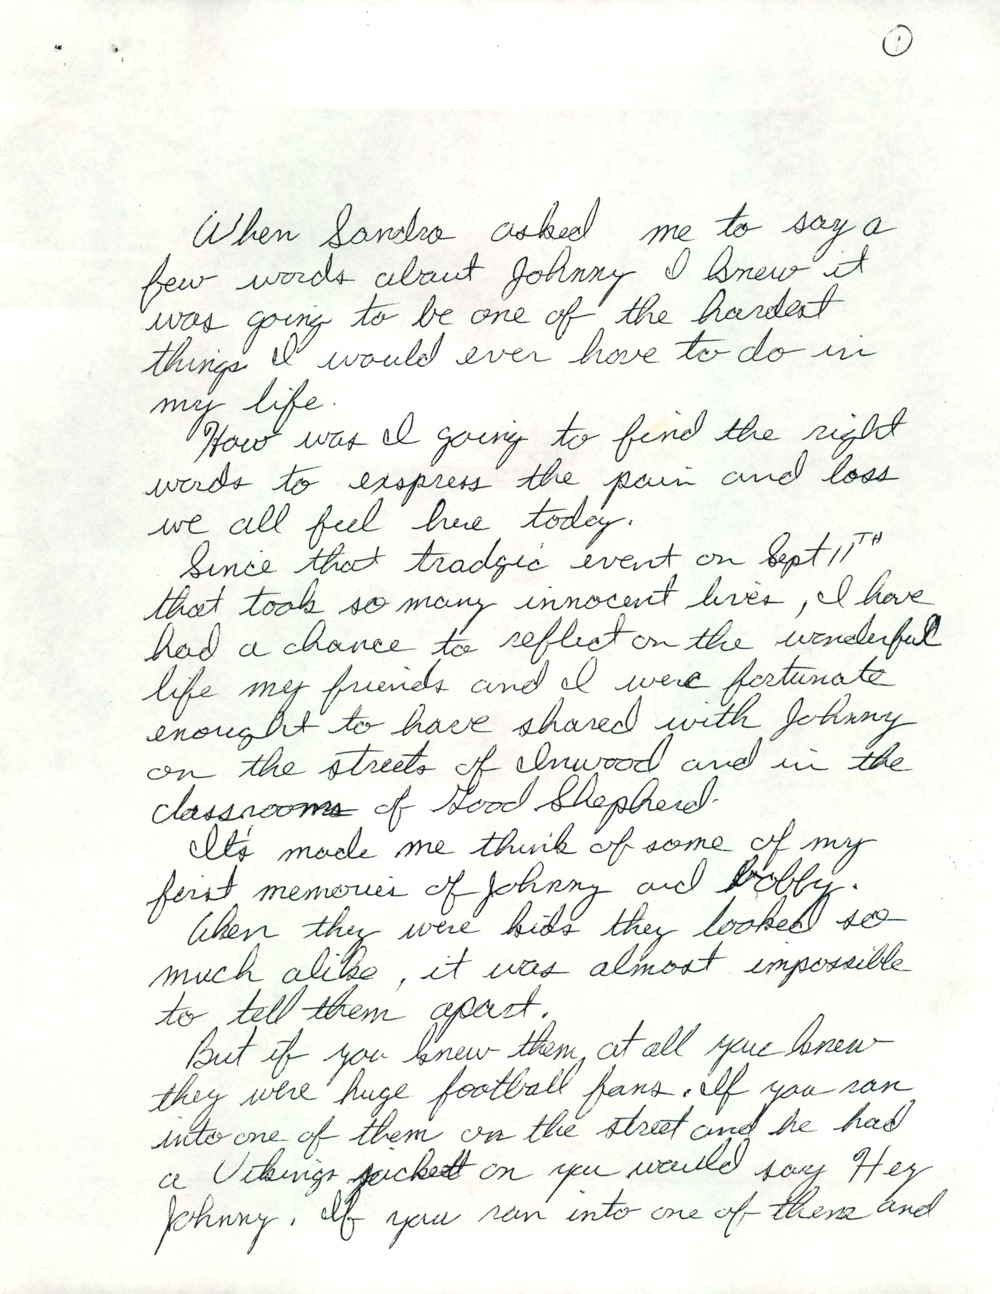 1
When Sandra asked me to say a
few words about Johnny I knew it
was going to be one of the hardest
things I would ever have to do in
my life.
How was I going to find the right
words to exspress the pain and loss
we all feel here today.
Since that tradgic event on Sept 11TH
that took so many innocent lives, I have
had a chance to reflect on the wonderful
life my friends and I were fortunate
enought to have shared with Johnny
on the streets of Inwood and in the
classrooms of Good Shepherd.
It's made me think of some of my
first memories of Johnny and Bobby.
When they were kids they looked so
much alike, it was almost impossible
to tell them apart.
But if you knew them, at all you knew
they were huge football fans. If you ran
into one of them on the street and he had
a Vikings jackett on you would say Hey
Johnny. If you ran into one of them and